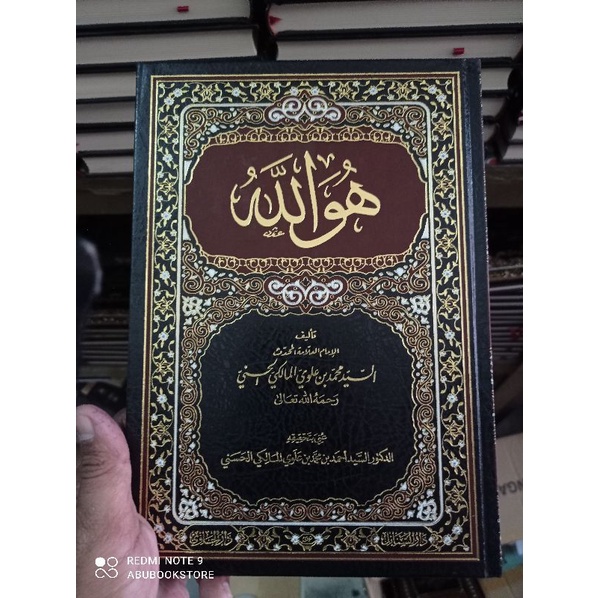 هُوَ اللَّهُ
تأليف
الإمام العلامة المحدث
السيد محمد بن علوي المالكي الحسني
رحمه الله تعالى
عني بتحقيقه
الدكتور السيد أحمد بن محمد بن علوي المالكي الحسني
REDMI NOTE 9
ABUBOOKSTORE